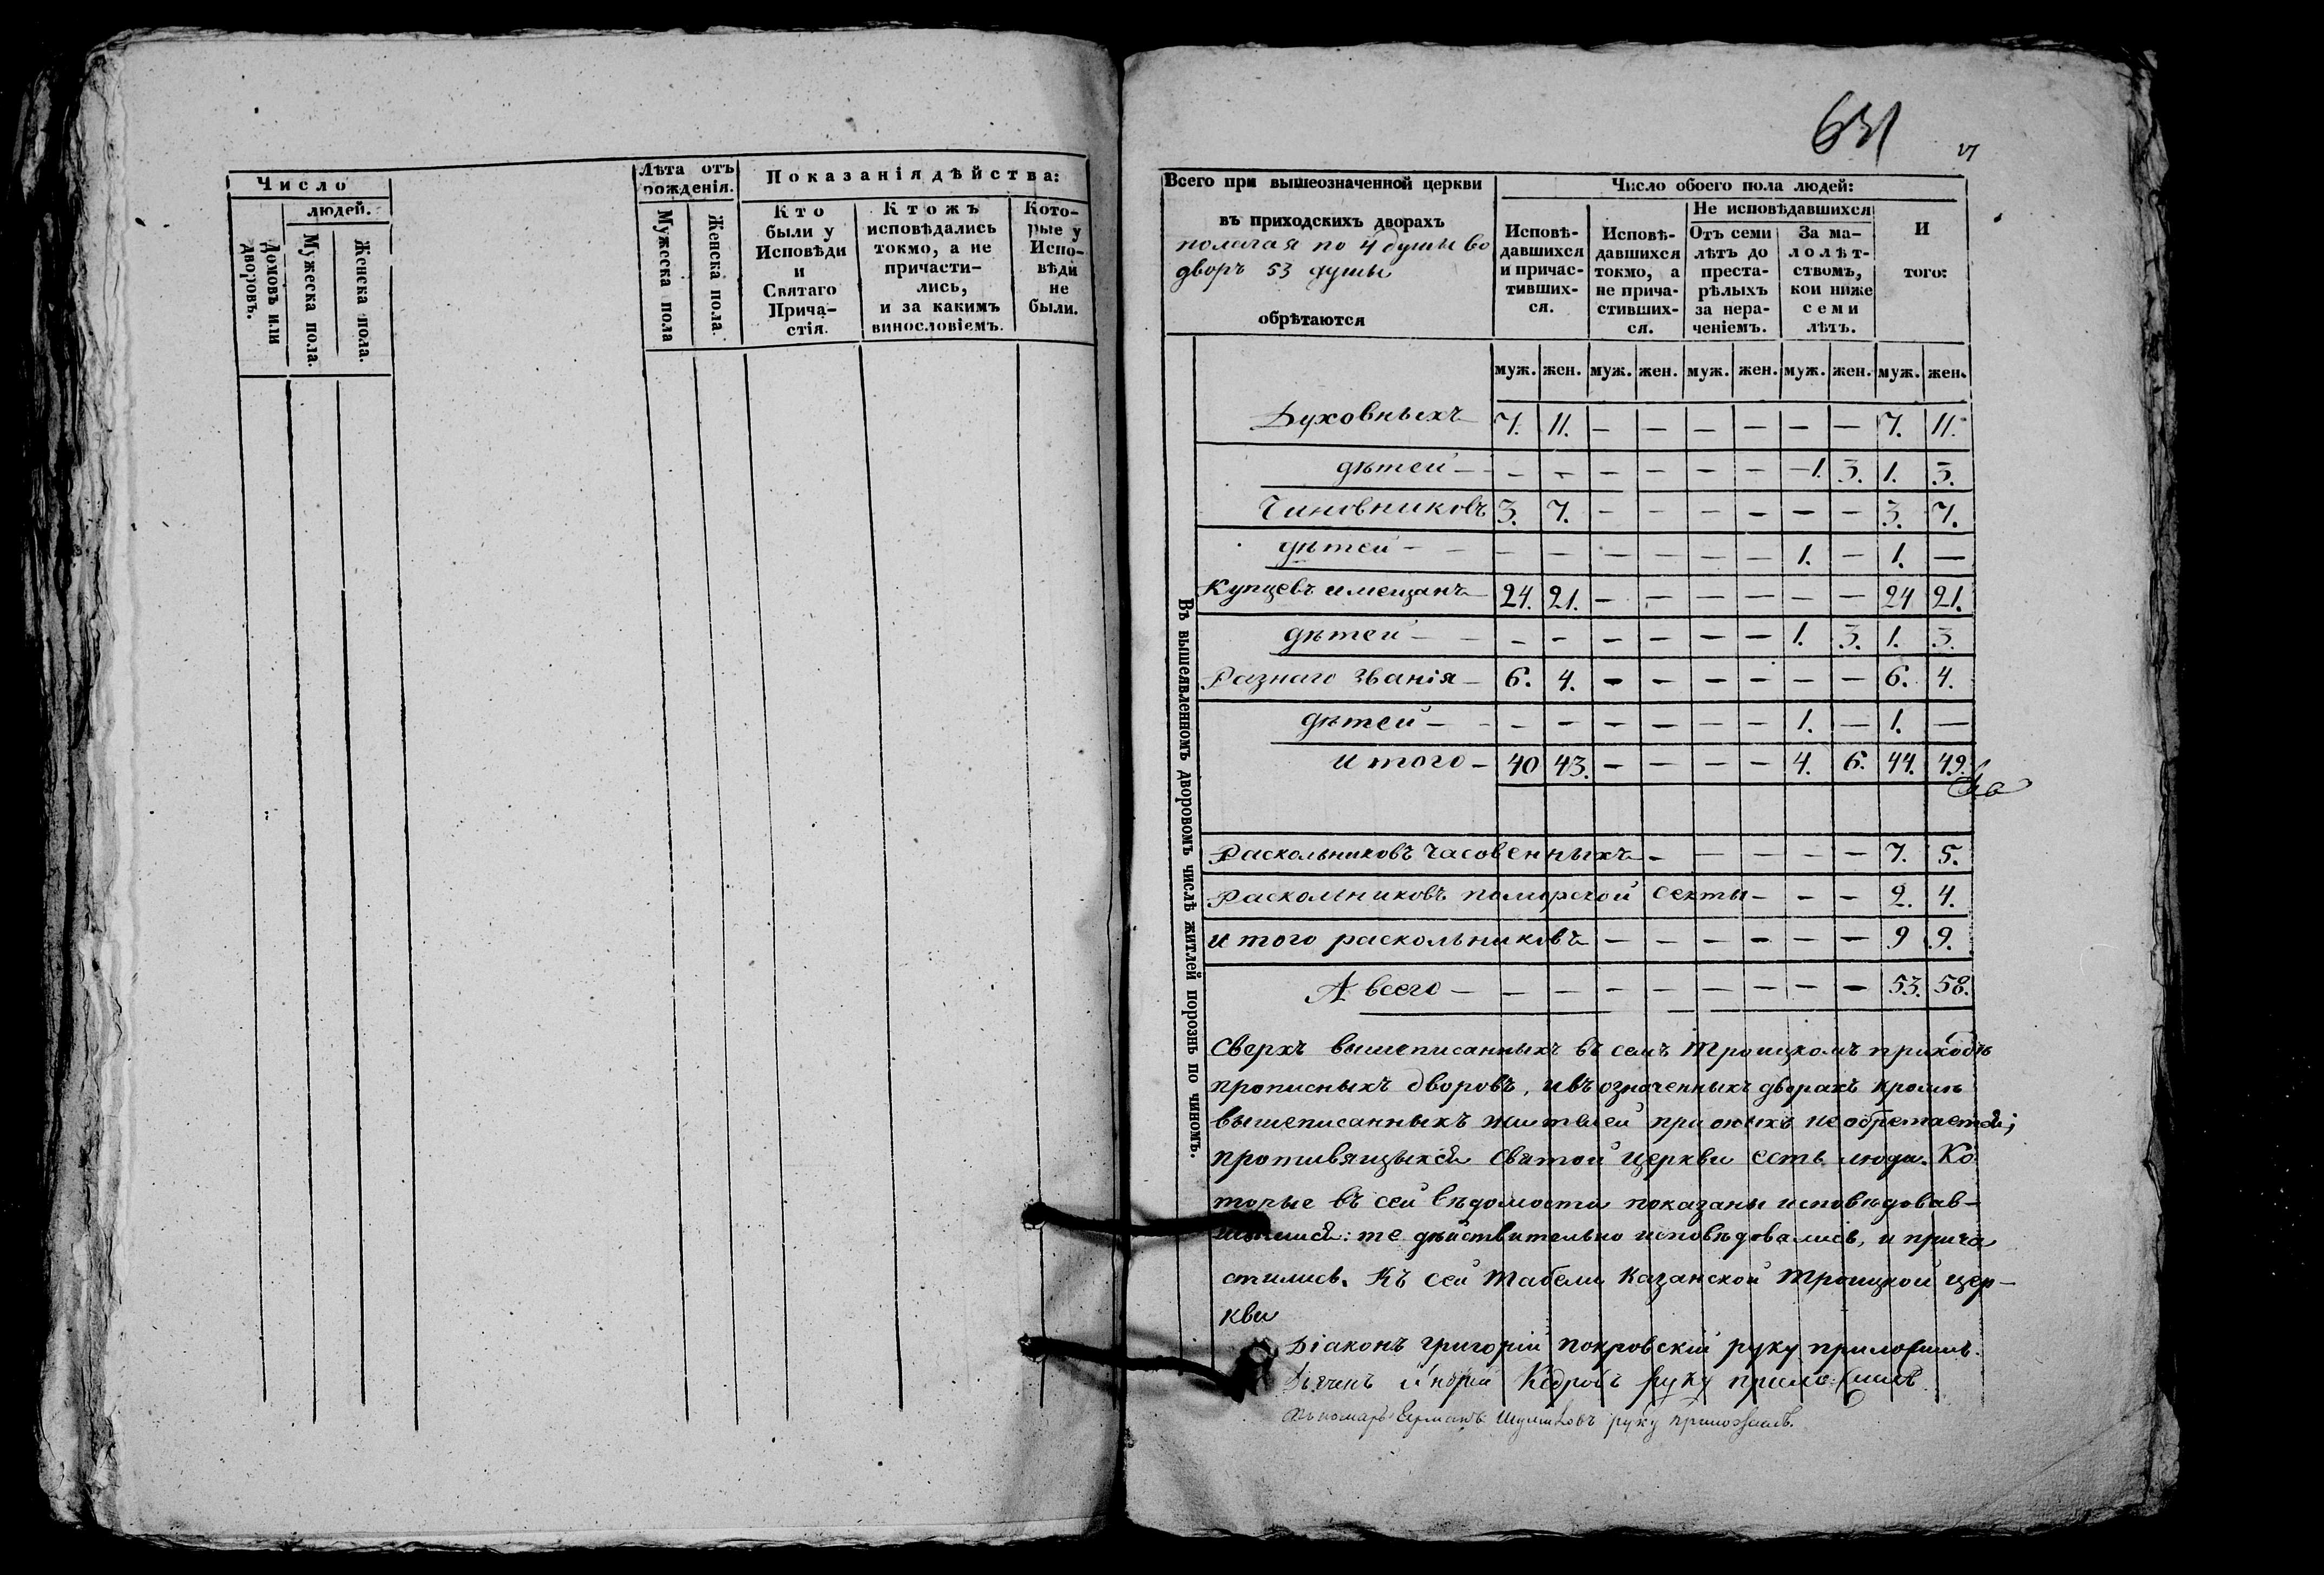 Число
людей.
Домовъ или
дворовъ.
Мужеска пола.
Женска пола.
Лѣта отъ
рожденія.
Мужеска пола
Женска пола.
Показанія дѣйства:
Кто
были у
Исповѣди
и
Святаго
Прича-
стія.
Ктожъ
исповѣдались
токмо, а не
причасти-
лись,
и за какимъ
винословіемъ.
Кото-
рые у
Испо-
вѣди
не
были.
631
Всего при вышеозначенной церкви
въ приходскихъ дворахъ
полагая по 4 души во
дворъ 53 души
обрѣтаются
Число обоего пола людей:
Исповѣ-
давшихся
и причас-
тивших-
ся.
Исповѣ-
давшихся
токмо, а
не прича-
стивших-
ся.
Не исповѣдавшихся
Отъ семи
лѣтъ до
преста-
рѣлыхъ
за нера-
ченіемъ.
За ма-
лолѣт-
ствомъ,
кои ниже
семи
лѣтъ.
И
того:
муж. жен. муж. жен. муж. жен. муж. жен. муж. жен.
Въ вышеявленномъ дворовомъ числѣ жителей порознь по чиномъ.
Духовныхъ 7. 11. — — — — — — 7. 11.
дѣтей — — — — — — — 1. 3. 1. 3.
Чиновниковъ 3. 7. — — — — — — 3. 7.
дѣтей — — — — — — — 1. — 1. —
Купцевъ и мещанъ 24. 21. — — — — — — 24 21.
дѣтей — — — — — — — 1. 3. 1. 3.
Разнаго званія — 6. 4. — — — — — — 6. 4.
дѣтей — — — — — — — 1. — 1. —
Итого — 40 43. — — — — 4. 6. 44. 49.
Раскольниковъ часовенныхъ — — — — — 7. 5.
Раскольниковъ поморской секты — — — 2. 4.
итого раскольниковъ — — — — — — 9 9.
А всего — — — — — — — — — 53. 58.
Сверхъ вышеписанныхъ въ семъ Троицкомъ приходѣ
прописныхъ дворовъ, и въ означенныхъ дворахъ кромѣ
вышеписанныхъ жителей при оныхъ не обретается;
противящихся святой церкви есть люди. Ко
торые въ сей вѣдомости показаны исповѣдовав-
шимися: те дѣйствительно исповѣдовались, и прича
стились. Къ сей табели Казанской Троицкой цер-
кви
Діаконъ Григорій Покровскій руку приложилъ.
Дьячекъ Андрей Кедровъ руку приложилъ
Пономарь Германъ руку приложилъ.